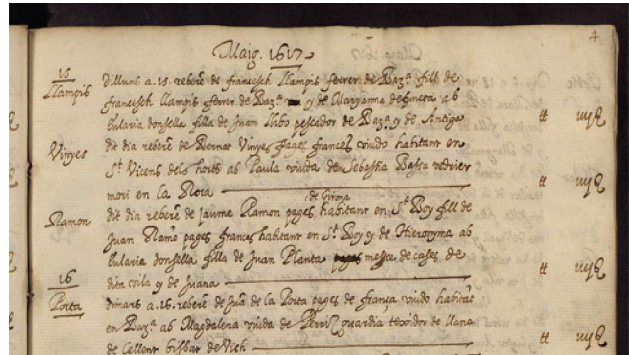 Maig. 1617
4
15
Llampis
dilluns a .15. rebere de francesch Llampis ferrer de Bar.ª fill de
francisch llampis ferrer de Bar.ª y de Maryanna defuncta ab
Eularia donsella filla de Juan llobo pescador de Bar.ª y de Antiga
Vinyes
dit dia rebere de Bernat Vinyes pages frances viudo habitant en
S.t Vicens dels horts ab Paula viuda de Sebastia Bassa vedrier
mori en la
Ramon
de Girona
dit dia rebere de Jaume Ramon pages habitant en S.t Boy fill de
Juan Ramo pages frances habitant en S.t Boy y de Hieronyma ab
Eularia donsella filla de Juan Planta mestre de cases de
dita y de Juana
16
Porta
dimars a .16. rebere de Jua de la Porta pages de frança viudo habitat
en Bar.ª ab Magdalena viuda de texidor de llana
de bisbat de Vich